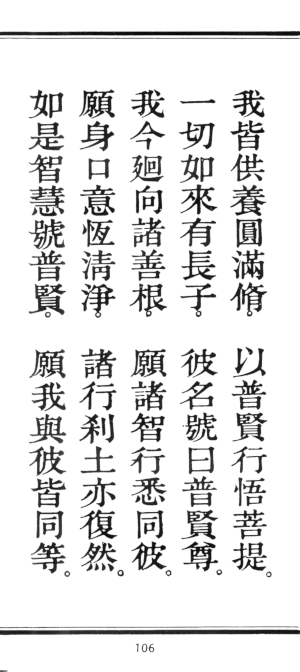 我皆供養圓滿脩。以普賢行悟菩提。
一切如來有長子。彼名號曰普賢尊。
我今廻向諸善根。願諸智行悉同彼。
願身口意恆淸淨。諸行刹土亦復然。
如是智慧號普賢。願我與彼皆同等。
106